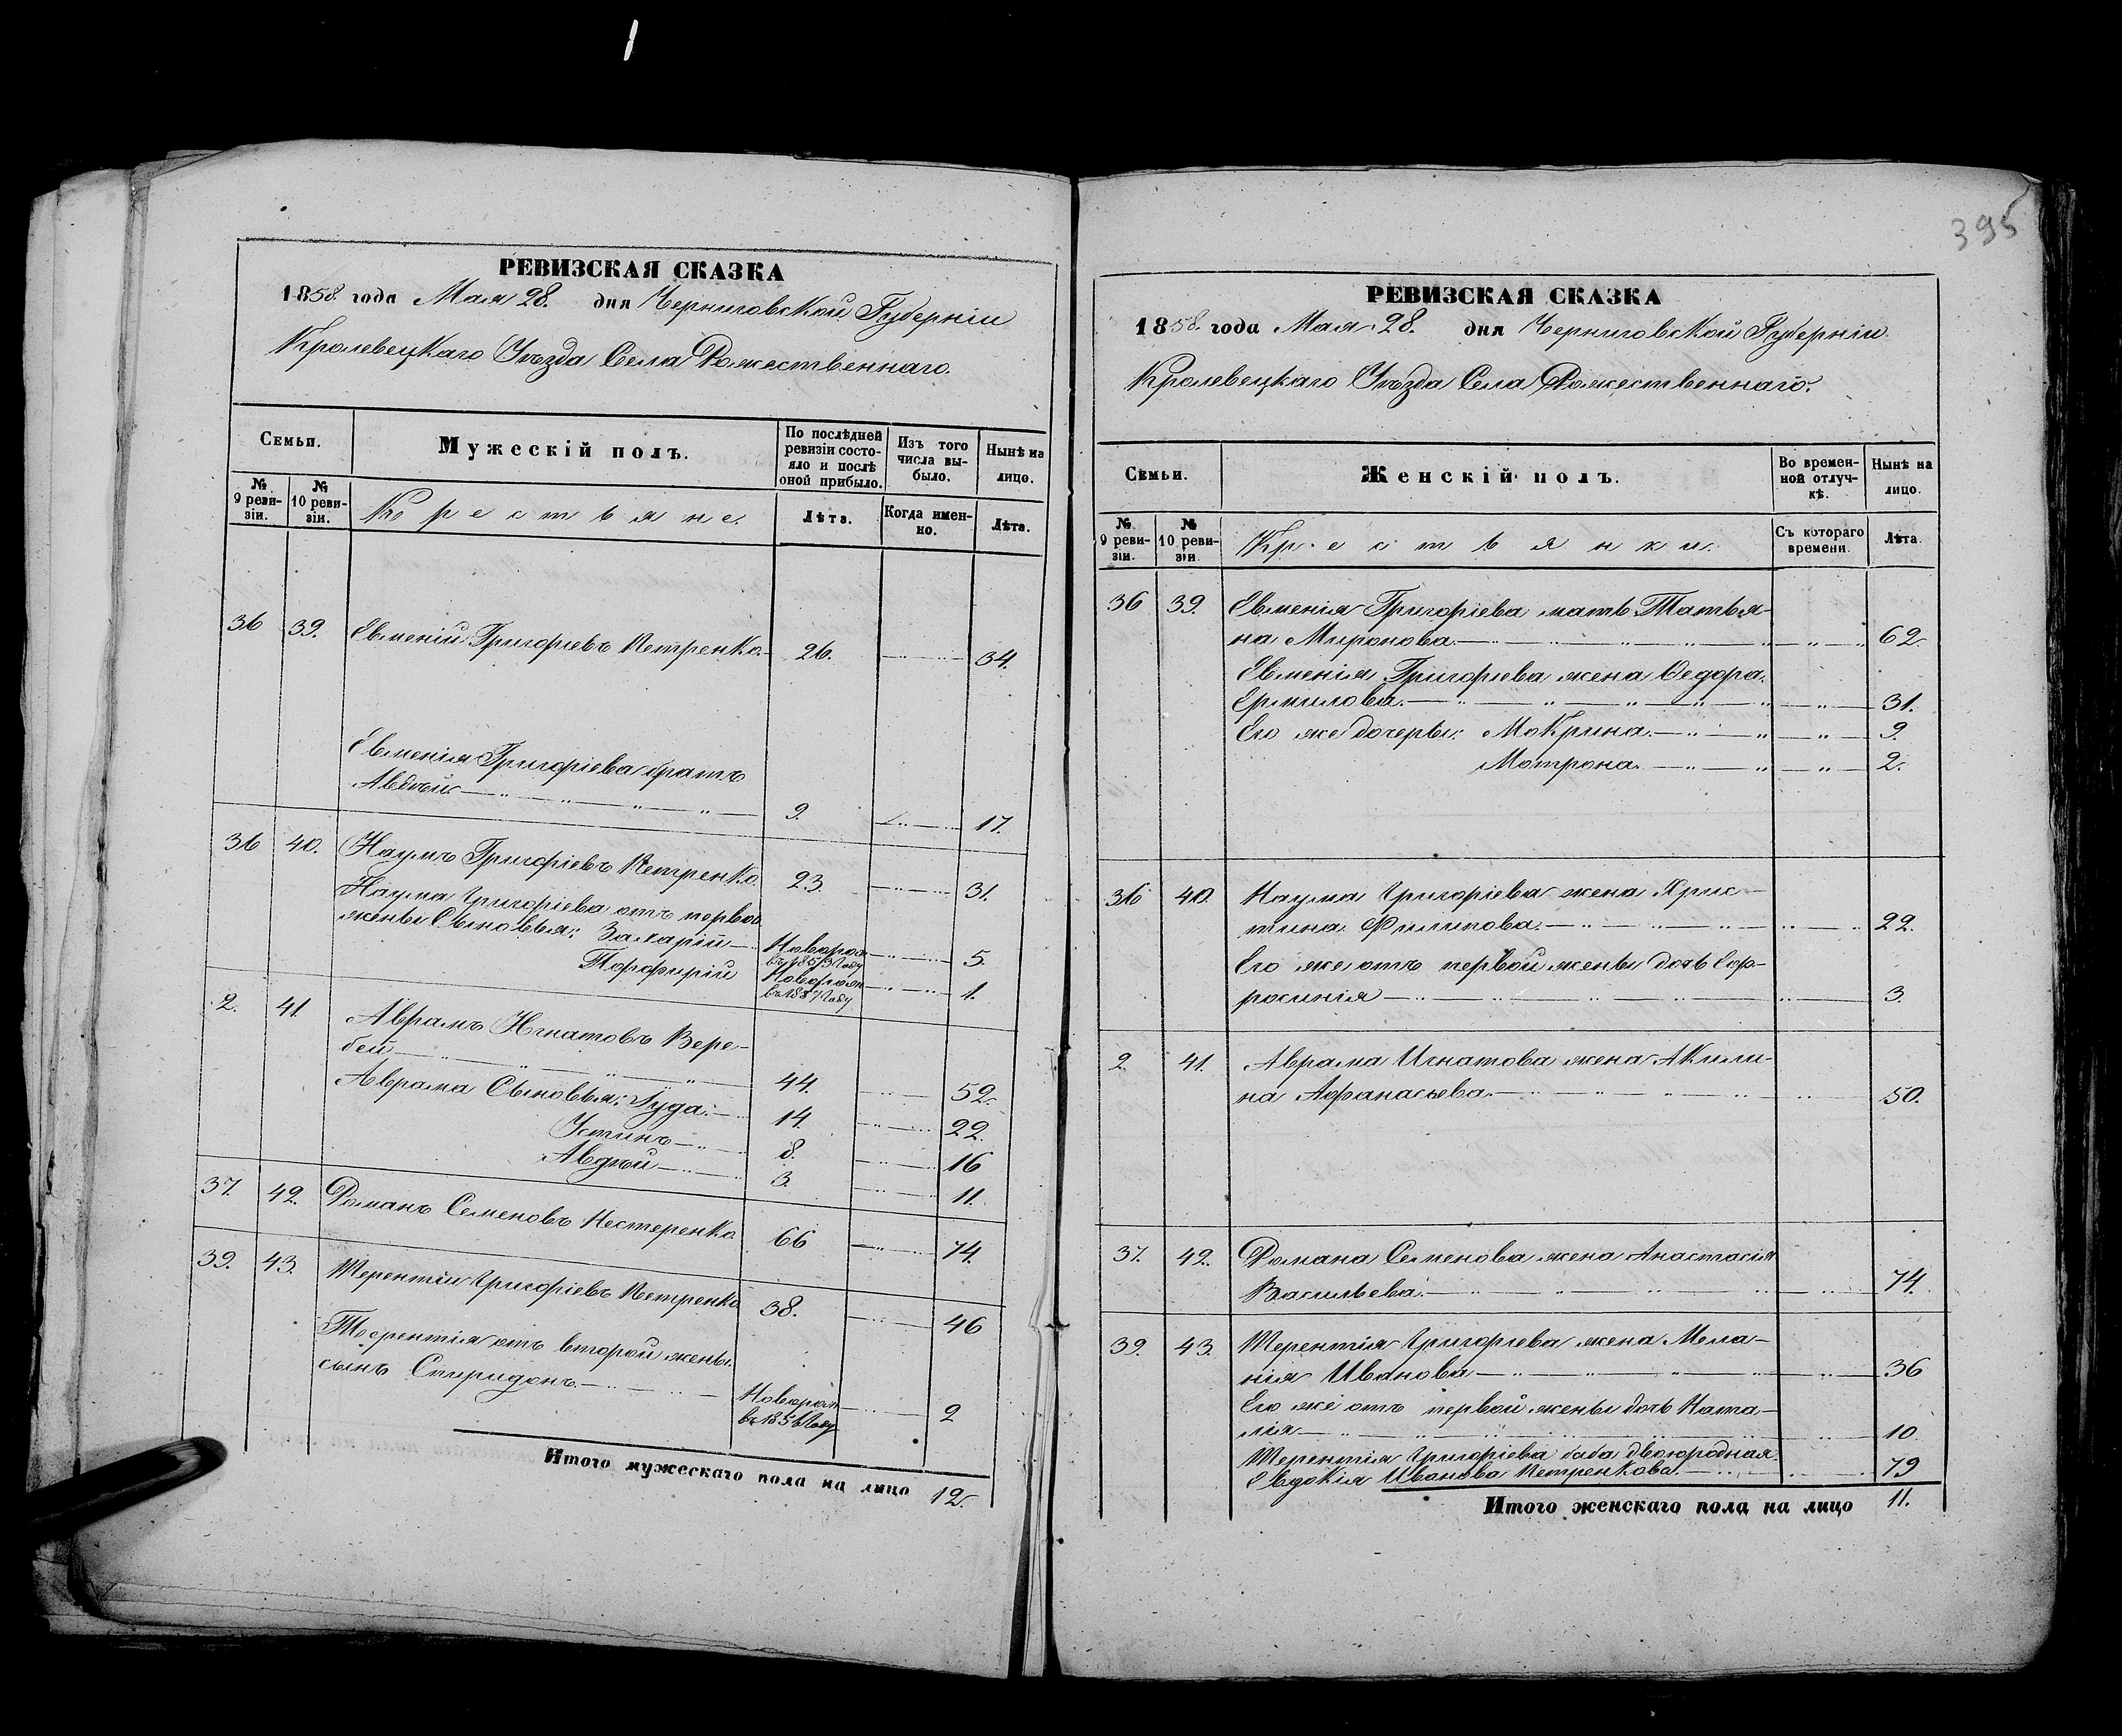 395
РЕВИЗСКАЯ СКАЗКА
1858. года Мая 28. дня Черниговской Губерніи
Кролевецкаго Уѣзда Села Рожественнаго.
Семьи.
Мужескій полъ.
По послѣдней ревизіи состояло и послѣ оной прибыло.
Изъ того числа выбыло.
Нынѣ на лицо.
№ 9 ревизіи.
№ 10 ревизіи.
Крестьяне.
Лѣта.
Когда именно.
Лѣта.
36 39. Евменій Григоріевъ Петренко. 26. 34.
Евменія Григоріева братъ
Авдѣй 9. 17.
36 40. Наумъ Григоріевъ Петренко. 23. 31.
Наума Григоріева отъ первой
жены Сыновья: Захарій Новорож. въ 1853 Году 5.
Порфирій Новорож. въ 1857 Году 1.
2. 41. Аврамъ Игнатовъ Вере-
бей 44. 52.
Аврама Сыновья: Іуда. 14. 22.
Устинъ 8. 16
Авдѣй 3. 11.
37. 42. Романъ Семеновъ Нестеренко 66 74.
39. 43. Терентій Григоріевъ Петренко 38. 46
Терентія отъ второй жены
сынъ Спиридонъ. Новорож. въ 1856 Году 2
Итого мужескаго пола на лицо 12.
РЕВИЗСКАЯ СКАЗКА
1858. года Мая 28. дня Черниговской Губерніи.
Кролевецкаго Уѣзда Села Рожественнаго.
Семьи.
Женскій полъ.
Во временной отлучкѣ.
Нынѣ на лицо.
№ 9 ревизіи.
№ 10 ревизіи.
Крестьянки.
Съ котораго времени.
Лѣта.
36 39. Евменія Григоріева мать Татья-
на Миронова. 62.
Евменія Григоріева жена Федора.
Ермилова. 31.
Его же дочеры: Мокрина. 9.
Мотрона. 2.
36 40. Наума Григоріева жена Хрис-
тина Филипова. 22.
Его же отъ первой жены дочь Еф-
росинія 3.
2. 41. Аврама Игнатова жена Акили-
на Афанасьева. 50.
37. 42. Романа Семенова жена Анастасія
Васильева. 74.
39. 43. Терентія Григоріева жена Мела-
нія Иванова 36
Его же отъ первой жены дочь Ната-
лія 10
Терентія Григоріева баба двоюродная
Евдокія Иванова Петренкова. 79
Итого женскаго пола на лицо 11.